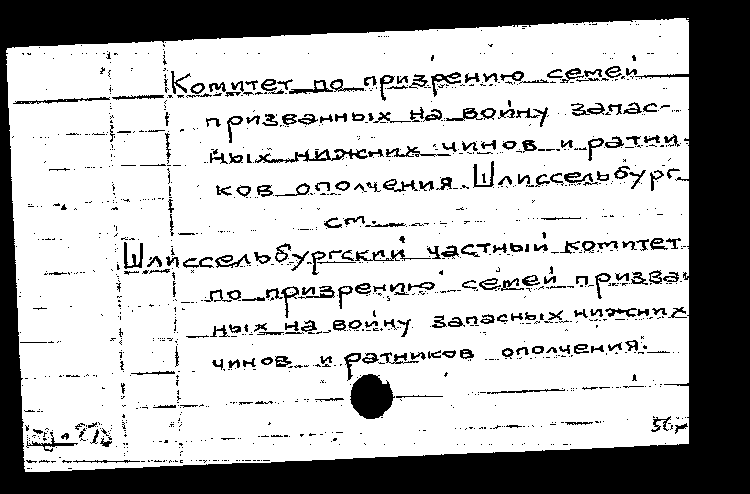 Комитет по призрению семей
призванных на войну запас-
ных нижних чинов и ратни-
ков ополчения. Шлиссельбург.
ст.
Шлиссельбургский частный комитет
по призрению семей призван
ных на войну запасных нижних
чинов и ратников ополчения.